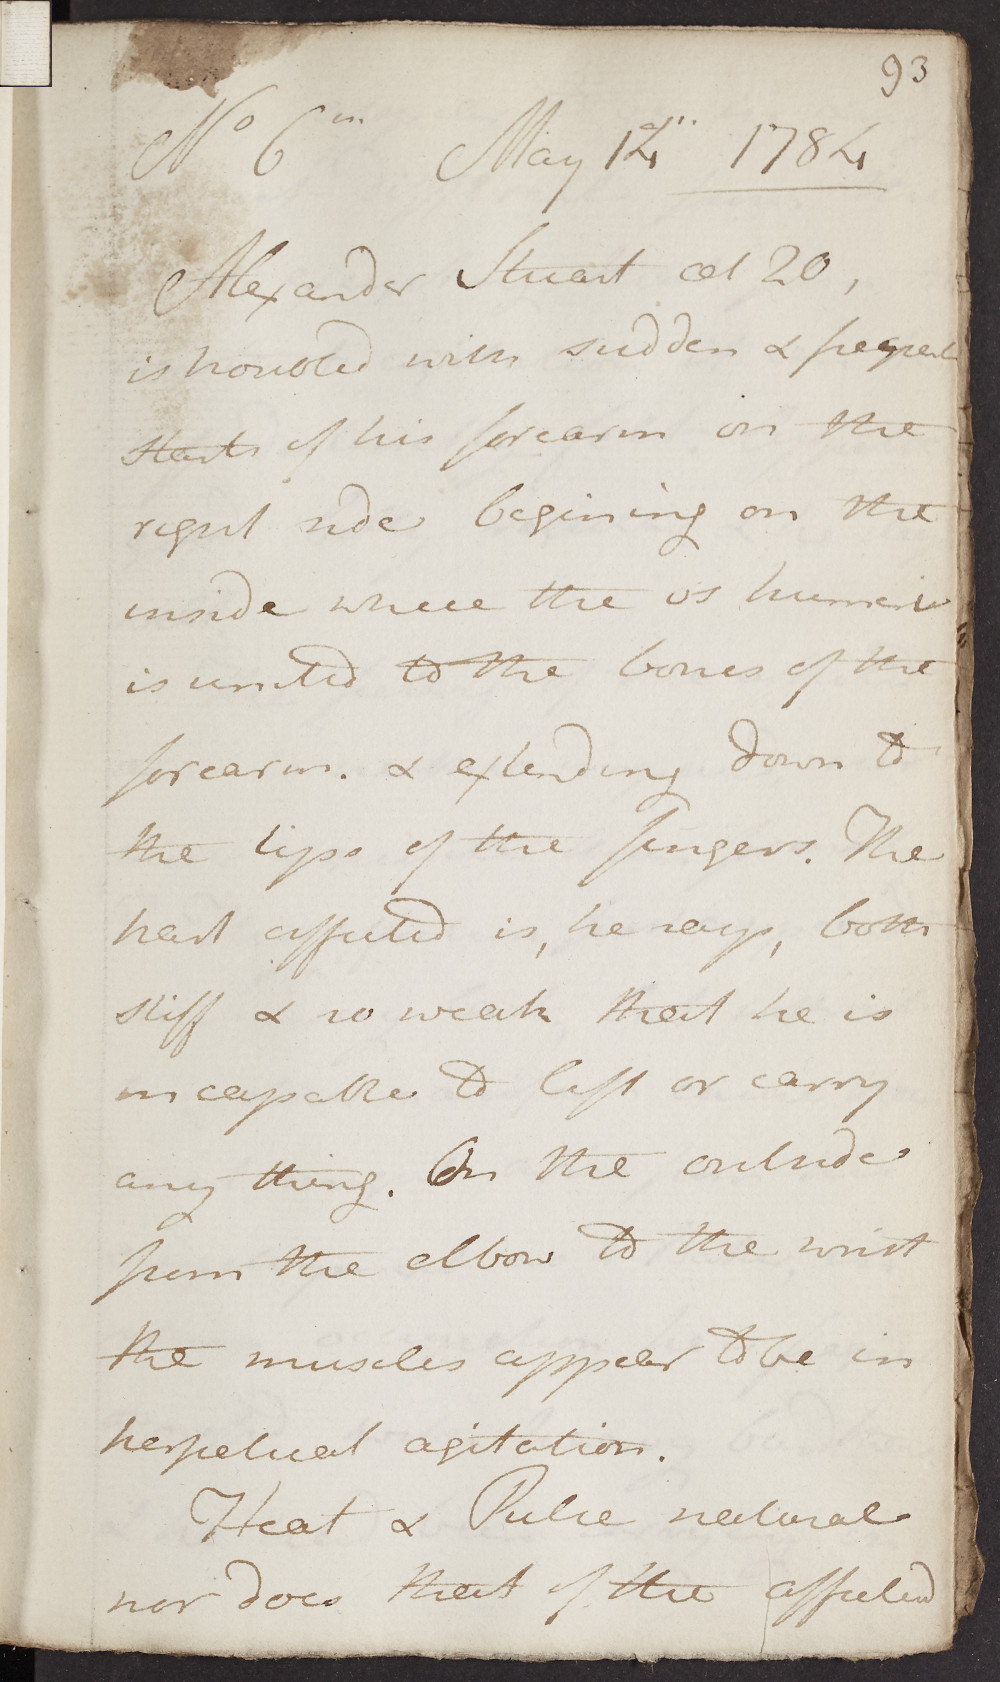 93
No 6th May 14th 1784
Alexander Stuart aet 20,
is troubled with sudden & frequent
starts of his forearm on the
right side begining on the
inside where the os humeri
is united to the bones of the
forearm. & extending down to
the tips of the fingers. The
part affected is, he says, both
stiff & so weak that he is
incapable to lift or carry
any thing. On the outside
from the elbow to the wrist
the muscles appear to be in
perpetual agitation.
Heat & Pulse natural
nor does that of the affected